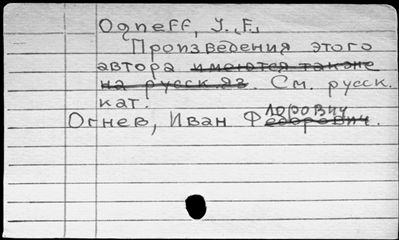 Ogneff, J. F.
Произведения этого
автора имеются также
на русск яз. См. русск.
кат:
Огнев, Иван Федорович.
лорович